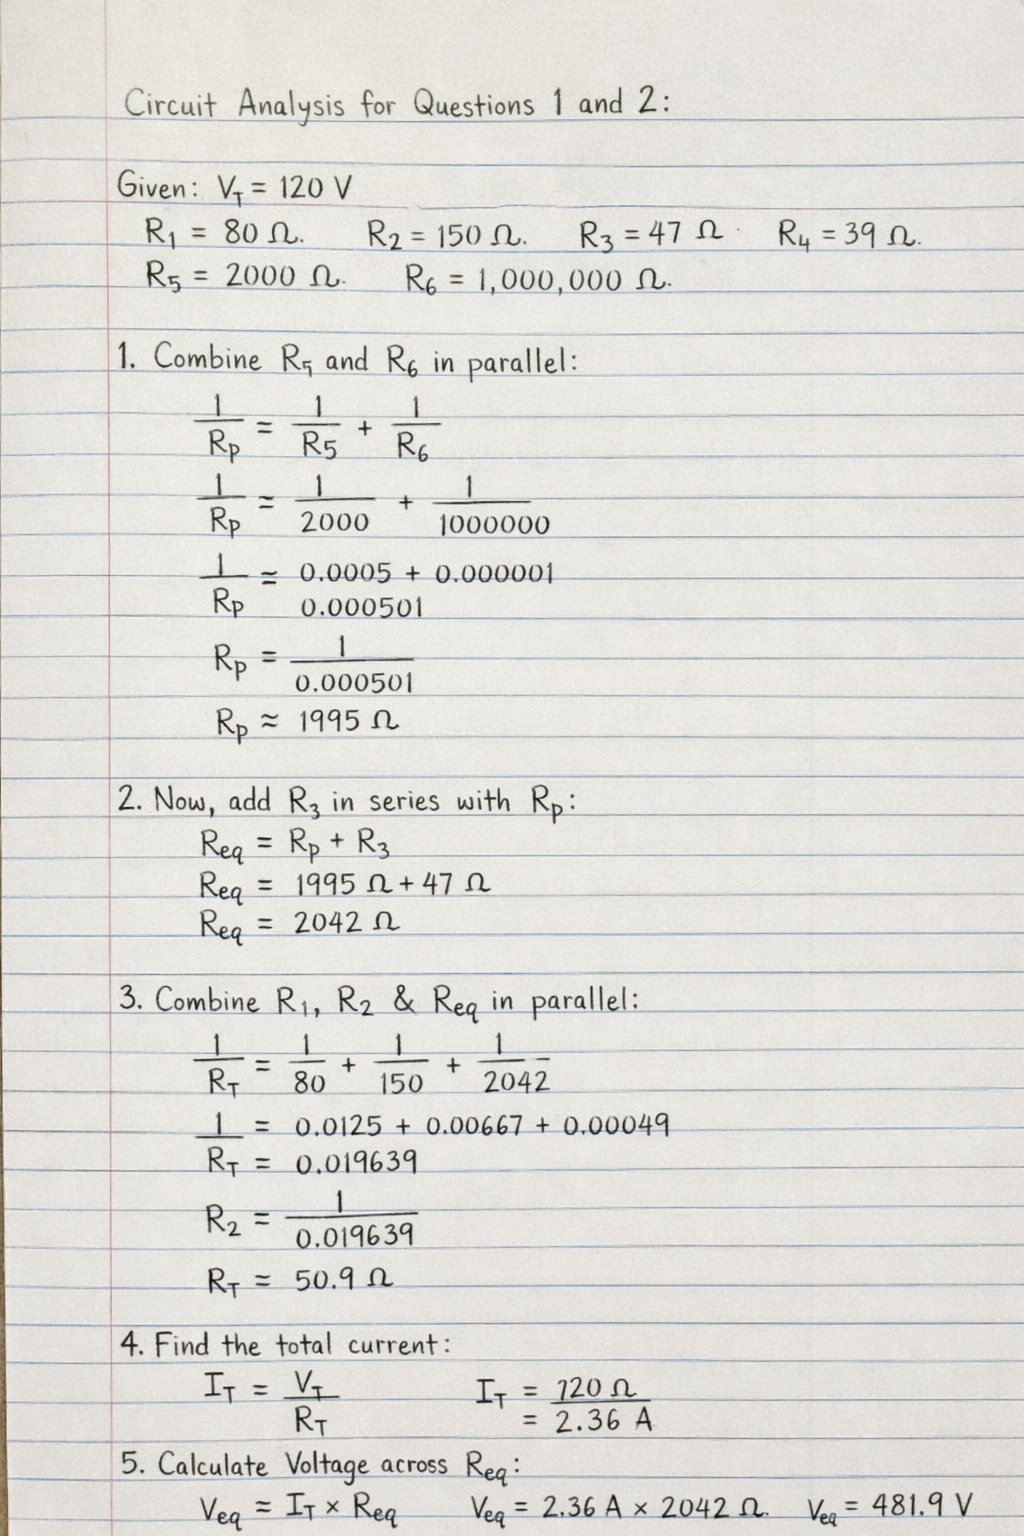 Circuit Analysis for Questions 1 and 2:
Given: V_T = 120 V
R₁ = 80 Ω. R₂ = 150 Ω. R₃ = 47 Ω R₄ = 39 Ω.
R₅ = 2000 Ω. R₆ = 1,000,000 Ω.
1. Combine R₅ and R₆ in parallel:
1/Rp = 1/R5 + 1/R₆
1/Rp = 1/2000 + 1/1000000
1/Rp ≈ 0.0005 + 0.000001
0.000501
Rp = 1/0.000501
Rp ≈ 1995 Ω
2. Now, add R₃ in series with Rp:
Req = Rp + R₃
Req = 1995 Ω + 47 Ω
Req = 2042 Ω
3. Combine R₁, R₂ & Req in parallel:
1/R_T = 1/80 + 1/150 + 1/2042
1/R_T = 0.0125 + 0.00667 + 0.00049
= 0.019639
R₂ = 1/0.019639
R_T = 50.9 Ω
4. Find the total current:
I_T = V_T/R_T I_T = 120 Ω
= 2.36 A
5. Calculate Voltage across Req:
Veq = I_T × Req Veq = 2.36 A × 2042 Ω. Veq = 481.9 V